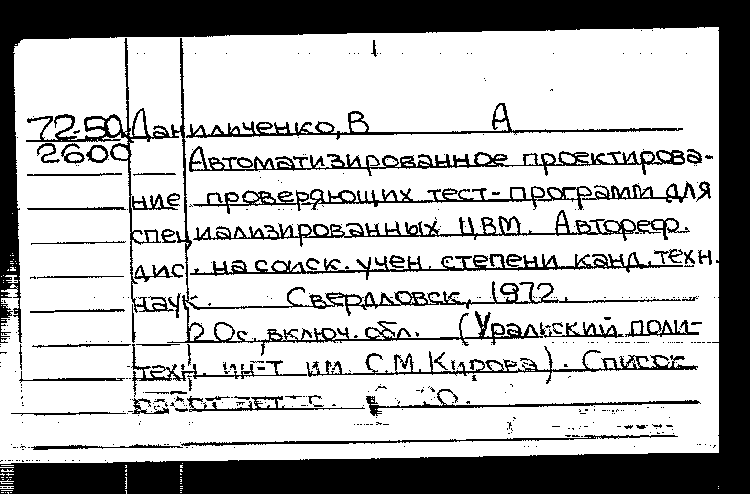 72-50 Данильченко, В А
2600 Автоматизированное проектирова-
ние проверяющих тест-программ для
специализированных ЦВМ. Автореф.
дис. на соиск. учен. степени канд. техн.
наук. Свердловск, 1972.
20с. включ. обл. (Уральский поли-
техн. ин-т им. С.М. Кирова). Список
работ с.